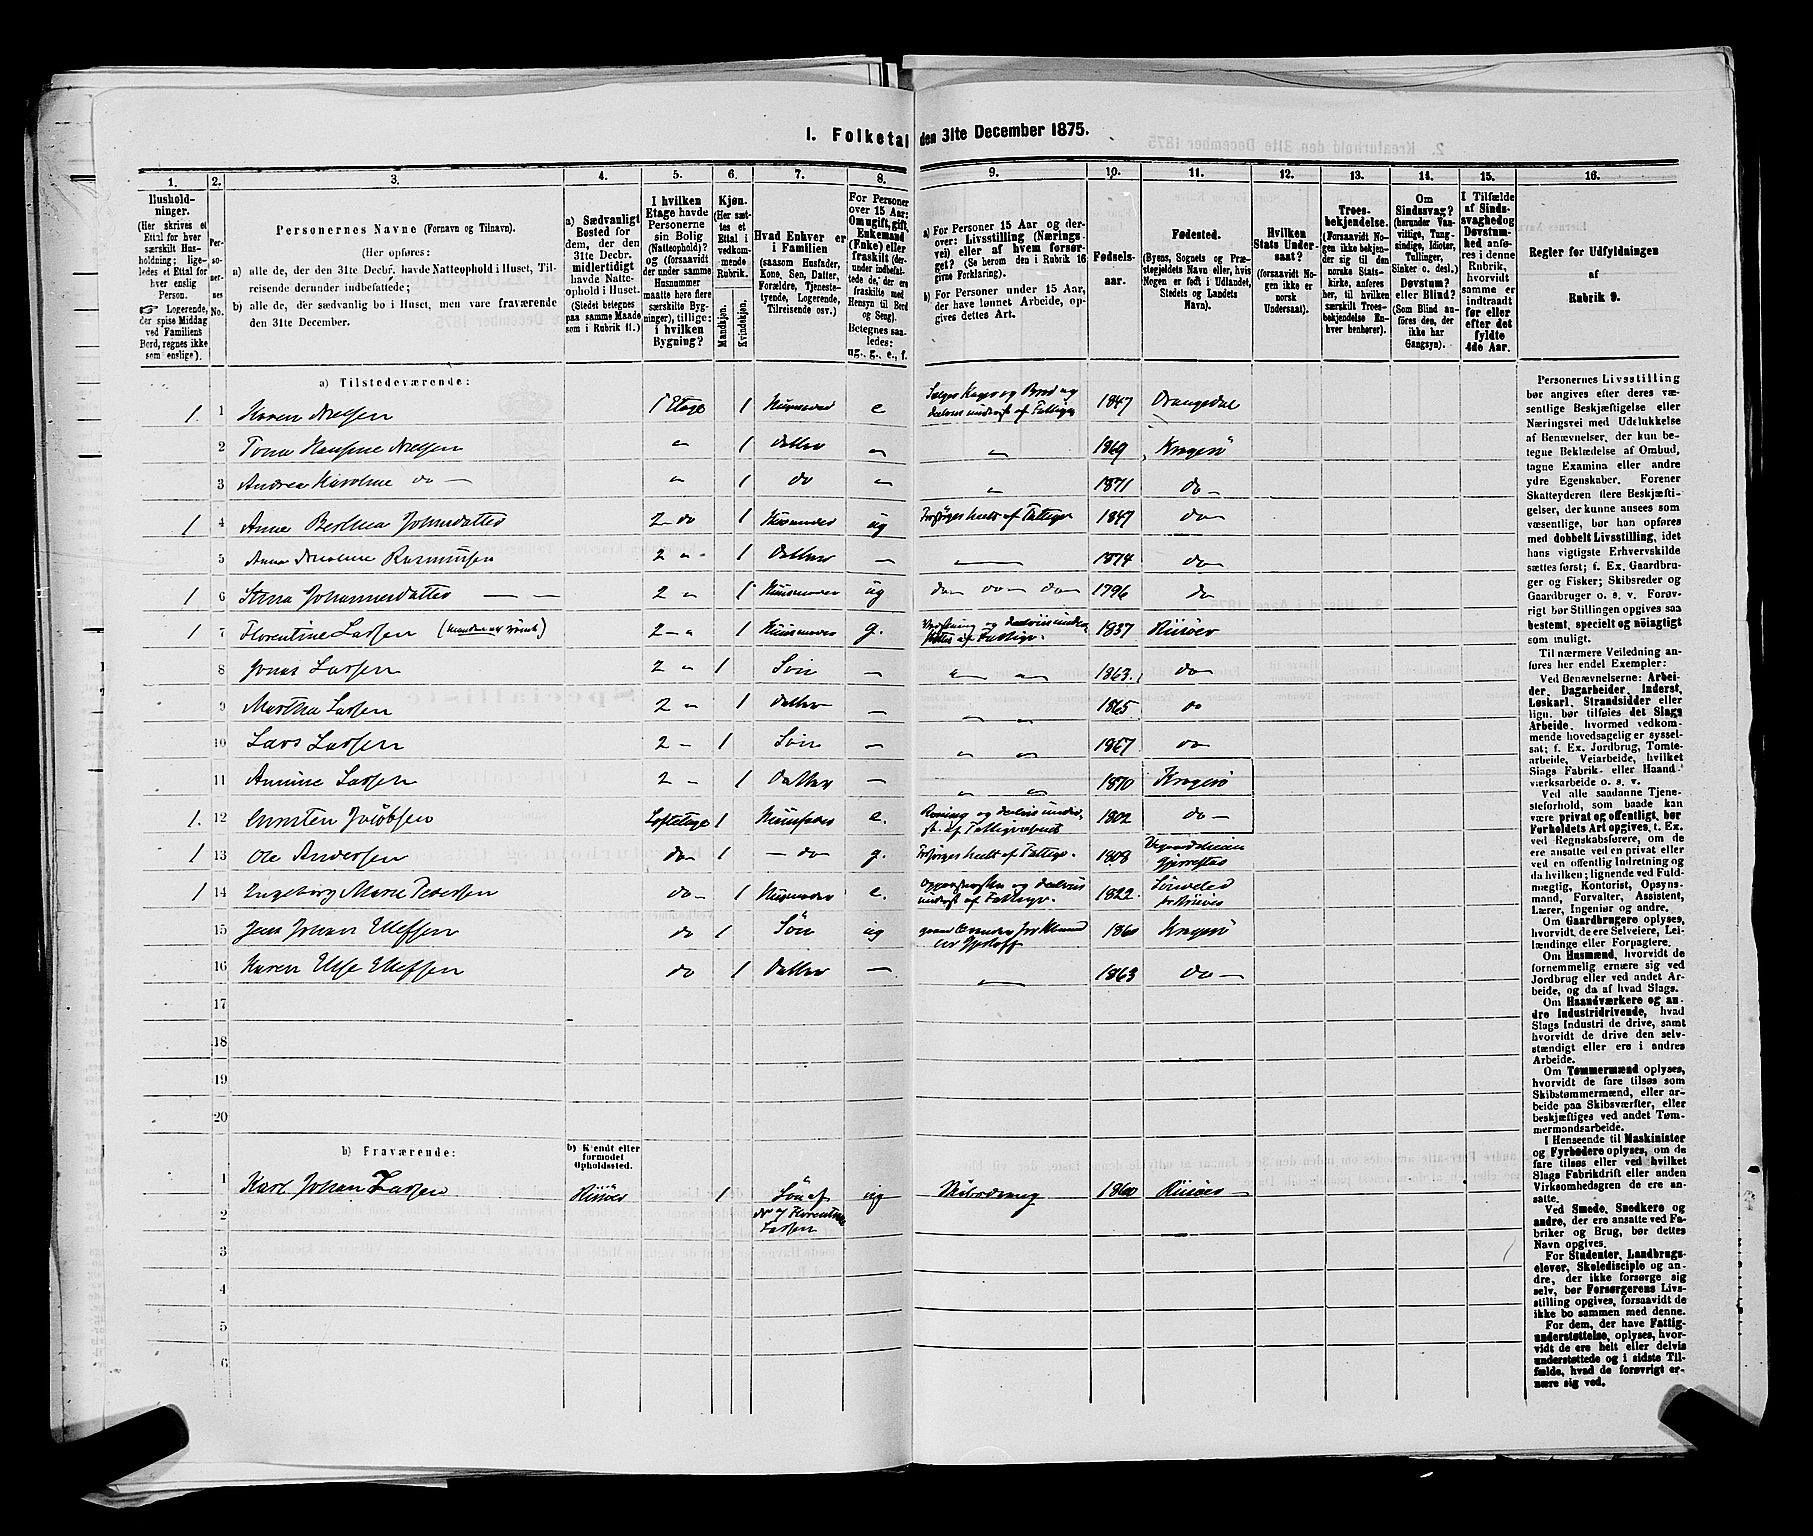 1. Folketal den 31te December 1875.
1. 2. 3. 4. 5. 6. 7. 8. 9. 10. 11. 12. 13. 14. 15. 16.
Husholdninger. (Her skrives et Ettal for hver særskilt Husholdning; ligeledes et Ettal for hver enslig Person. Logerende, der spise Middag ved Familiens Bord, regnes ikke som enslige).
Personernes No.
Personernes Navne (Fornavn og Tilnavn).
(Her opføres:
a) alle de, der den 31te Decbr. havde Natteophold i Huset, Tilreisende derunder indbefattede;
b) alle de, der sædvanlig bo i Huset, men vare fraværende den 31te December.
a) Sædvanligt Bosted for dem, der den 31te Decbr. midlertidigt havde Natteophold i Huset. (Stedet betegnes paa samme Maade som i Rubrik 11.)
I hvilken Etage havde Personerne sin Bolig (Natteophold)? og (forsaavidt der under samme Husnummer maatte høre flere særskilte Bygninger), tillige: i hvilken Bygning?
Kjøn. (Her sættes et Ettal i vedkommende Rubrik.
Mandkjøn. Kvindekjøn.
Hvad Enhver er i Familien (saasom Husfader, Kone, Søn, Datter, Forældre, Tjenestetyende, Logerende, Tilreisende osv.)
For Personer over 15 Aar; Om ugift, gift, Enkemand (Enke) eller fraskilt (derunder indbefattede de, der ere fraskilte med Hensyn til Bord og Seng). Betegnes saaledes: ug., g., e., f.
a) For Personer 15 Aar og derover: Livsstilling (Næringsvei) eller af hvem forsørget? (Se herom den i Rubrik 16 givne Forklaring).
b) For Personer under 15 Aar, der have lønnet Arbeide, opgives dettes Art.
Fødselsaar.
Fødested.
(Byens, Sognets og Præstegjeldets Navn eller, hvis Nogen er født i Udlandet, Stedets og Landets Navn).
Hvilken Stats Undersaat? (forsaavidt Nogen ikke er norsk Undersaat).
Troesbekjendelse. (Forsaavidt Nogen ikke bekjender sig til den norske Statskirke, anføres her, til hvilken særskilt Troesbekjendelse Enhver henhører).
Om Sindssvag? (herunder Vanvittige, Tungsindige, Idioter, Tullinger, Sinker o. desl.) Døvstum? eller Blind? (Som Blind anføres den, der ikke har Gangsyn).
I Tilfælde af Sindssvaghed og Døvstumhed anføres i denne Rubrik, hvorvidt samme er indtraadt før eller efter det fyldte 4de Aar.
Regler for Udfyldningen af Rubrik 9.
a) Tilstedeværende:
1. 1 Karen Nielsen 1 Etage 1 Huusmoder e 1847 Drangedal
2 Tona Hansine Nielsen 1 Datter 1869 Kragerø
3 Andrea Karoline do 1 do 1871 do
1 4 Anne Berthea Johnsdatter 2 do 1 Huusmoder ug Forsørges heelt af Fattigv. 1847 do
5 Anna Nicoline Rasmussen 2 1 Datter 1874 do
1 6 Stina Johannesdatter 2 1 Huusmoder ug do do do 1796 do
1 7 Florentine Larsen 2 1 Huusmoder g. 1837 Riisøer
8 Jonas Larsen 2 1 Søn 1863 do
9 Martha Larsen 2 1 Datter 1865 do
10 Lars Larsen 2 1 Søn 1867 do
11 Annine Larsen 2 1 Datter 1870 Kragerø
1. 12 Jacobsen Loftetage 1 Huusfader e. 1802 do
1 13 Ole Andersen do 1 do g. Forsørges heelt af Fattigv. 1808 Gjerrestad
1 14 Ingeborg Marie Pedersen do 1 Huusmoder e. 1822 Søndeled
15 Jens Johan Ellefsen do 1 Søn ug 1860 Kragerø
16 Karen Else Ellefsen do 1 Datter 1863 do
17
18
19
20
b) Fraværende:
b) Kjendt eller formodet Opholdssted.
1 Karl Johan Larsen Riisøer 1 Søn af No 7 Florentine Larsen ug 1860 Riisøer
2
3
4
5
6
Personernes Livsstilling bør angives efter deres væsentlige Beskjæftigelse eller Næringsvei med Udelukkelse af Benævnelser, der kun betegne Beklædelse af Ombud, tagne Examina eller andre ydre Egenskaber. Forener Skatteyderen flere Beskjæftigelser, der kunne ansees som væsentlige, bør han opføres med dobbelt Livsstilling, idet hans vigtigste Erhvervskilde sættes først; f. Ex. Gaardbruger og Fisker; Skibsreder og Gaardbruger o. s. v. Forøvrigt bør Stillingen opgives saa bestemt, specielt og nöiagtigt som muligt.
Til nærmere Veiledning anføres her endel Exempler:
Ved Benævnelserne: Arbeider, Dagarbeider, Inderst, Løskarl, Strandsidder eller lign. bør tilføies det Slags Arbeide, hvormed vedkommende hovedsagelig er sysselsat; f. Ex. Jordbrug, Tomtearbeide, Veiarbeide, hvilket Slags Fabrik- eller Haandværksarbeide o. s. v.
Ved alle saadanne Tjenesteforhold, som baade kan være privat og offentligt, bør Forholdets Art opgives, t. Ex. ved Regnskabsførere, om de ere ansatte ved en privat eller ved en offentlig Indretning og da hvilken; lignende ved Fuldmægtig, Kontorist, Opsynsmand, Forvalter, Assistent, Lærer, Ingeniør og andre.
Om Gaardbrugere oplyses, hvorvidt de ere Selveiere, Leilændinge eller Forpagtere.
Om Husmænd, hvorvidt de fornemmelig ernære sig ved Jordbrug eller ved andet Arbeide, og da af hvad Slags.
Om Haandværkere og andre Industridrivende, hvad Slags Industri de drive, samt hvorvidt de drive den selvstændigt eller ere i andres Arbeide.
Om Tømmermænd oplyses, hvorvidt de fare tilsøs som Skibstømmermænd, eller arbeide paa Skibsværfter, eller beskjæftiges ved andet Tømmermandsarbeide.
I Henseende til Maskinister og Fyrbødere oplyses, om de fare tilsøs eller ved hvilket Slags Fabrikdrift eller anden Virksomhedsgren de ere ansatte.
Ved Smede, Snedkere og andre, der ere ansatte ved Fabriker og Brug, bør dettes Navn opgives.
For Studenter, Landbrugselever, Skoledisciple og andre, der ikke forsørge sig selv, bør Forsørgerens Livsstilling opgives, forsaavidt de ikke bo sammen med denne.
For dem, der have Fattigunderstøttelse, oplyses, hvorvidt de ere helt eller delvis understøttede og i sidste Tilfælde, hvad de forøvrigt ernære sig ved.